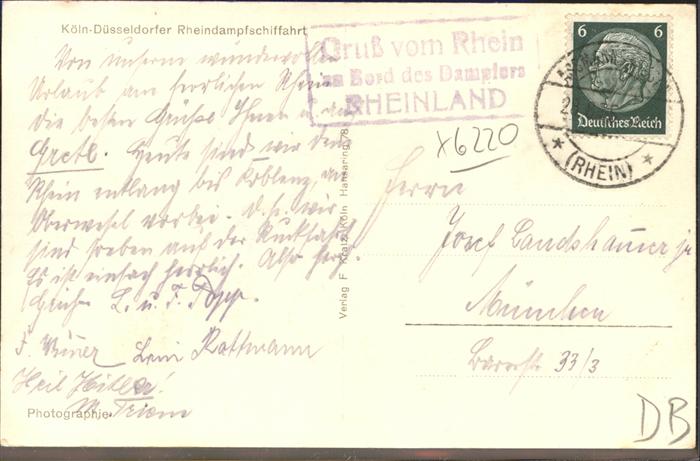 Köln-Düsseldorfer Rheindampfschiffahrt
Von unserm wundervollen
Urlaub am herrlichen Rhein
die besten Grüße Ihnen u. der
Gretl. Heute sind wir den
Rhein entlang bis Koblenz, an
Oberwesel vorbei. D.h. wir
sind soeben auf der Rückfahrt.
Es ist einfach herrlich. Also herzl.
Grüße L. u. F. Popp.
Leni Rottmann
Heil Hitler!
Photographie
Verlag F. Kratz, Köln Hansaring 78
Gruß vom Rhein
an Bord des Dampfers
RHEINLAND
6 6
Deutsches Reich
(RHEIN)
x6220
Herrn
Josef Landshamer jr
München
33/3
DB